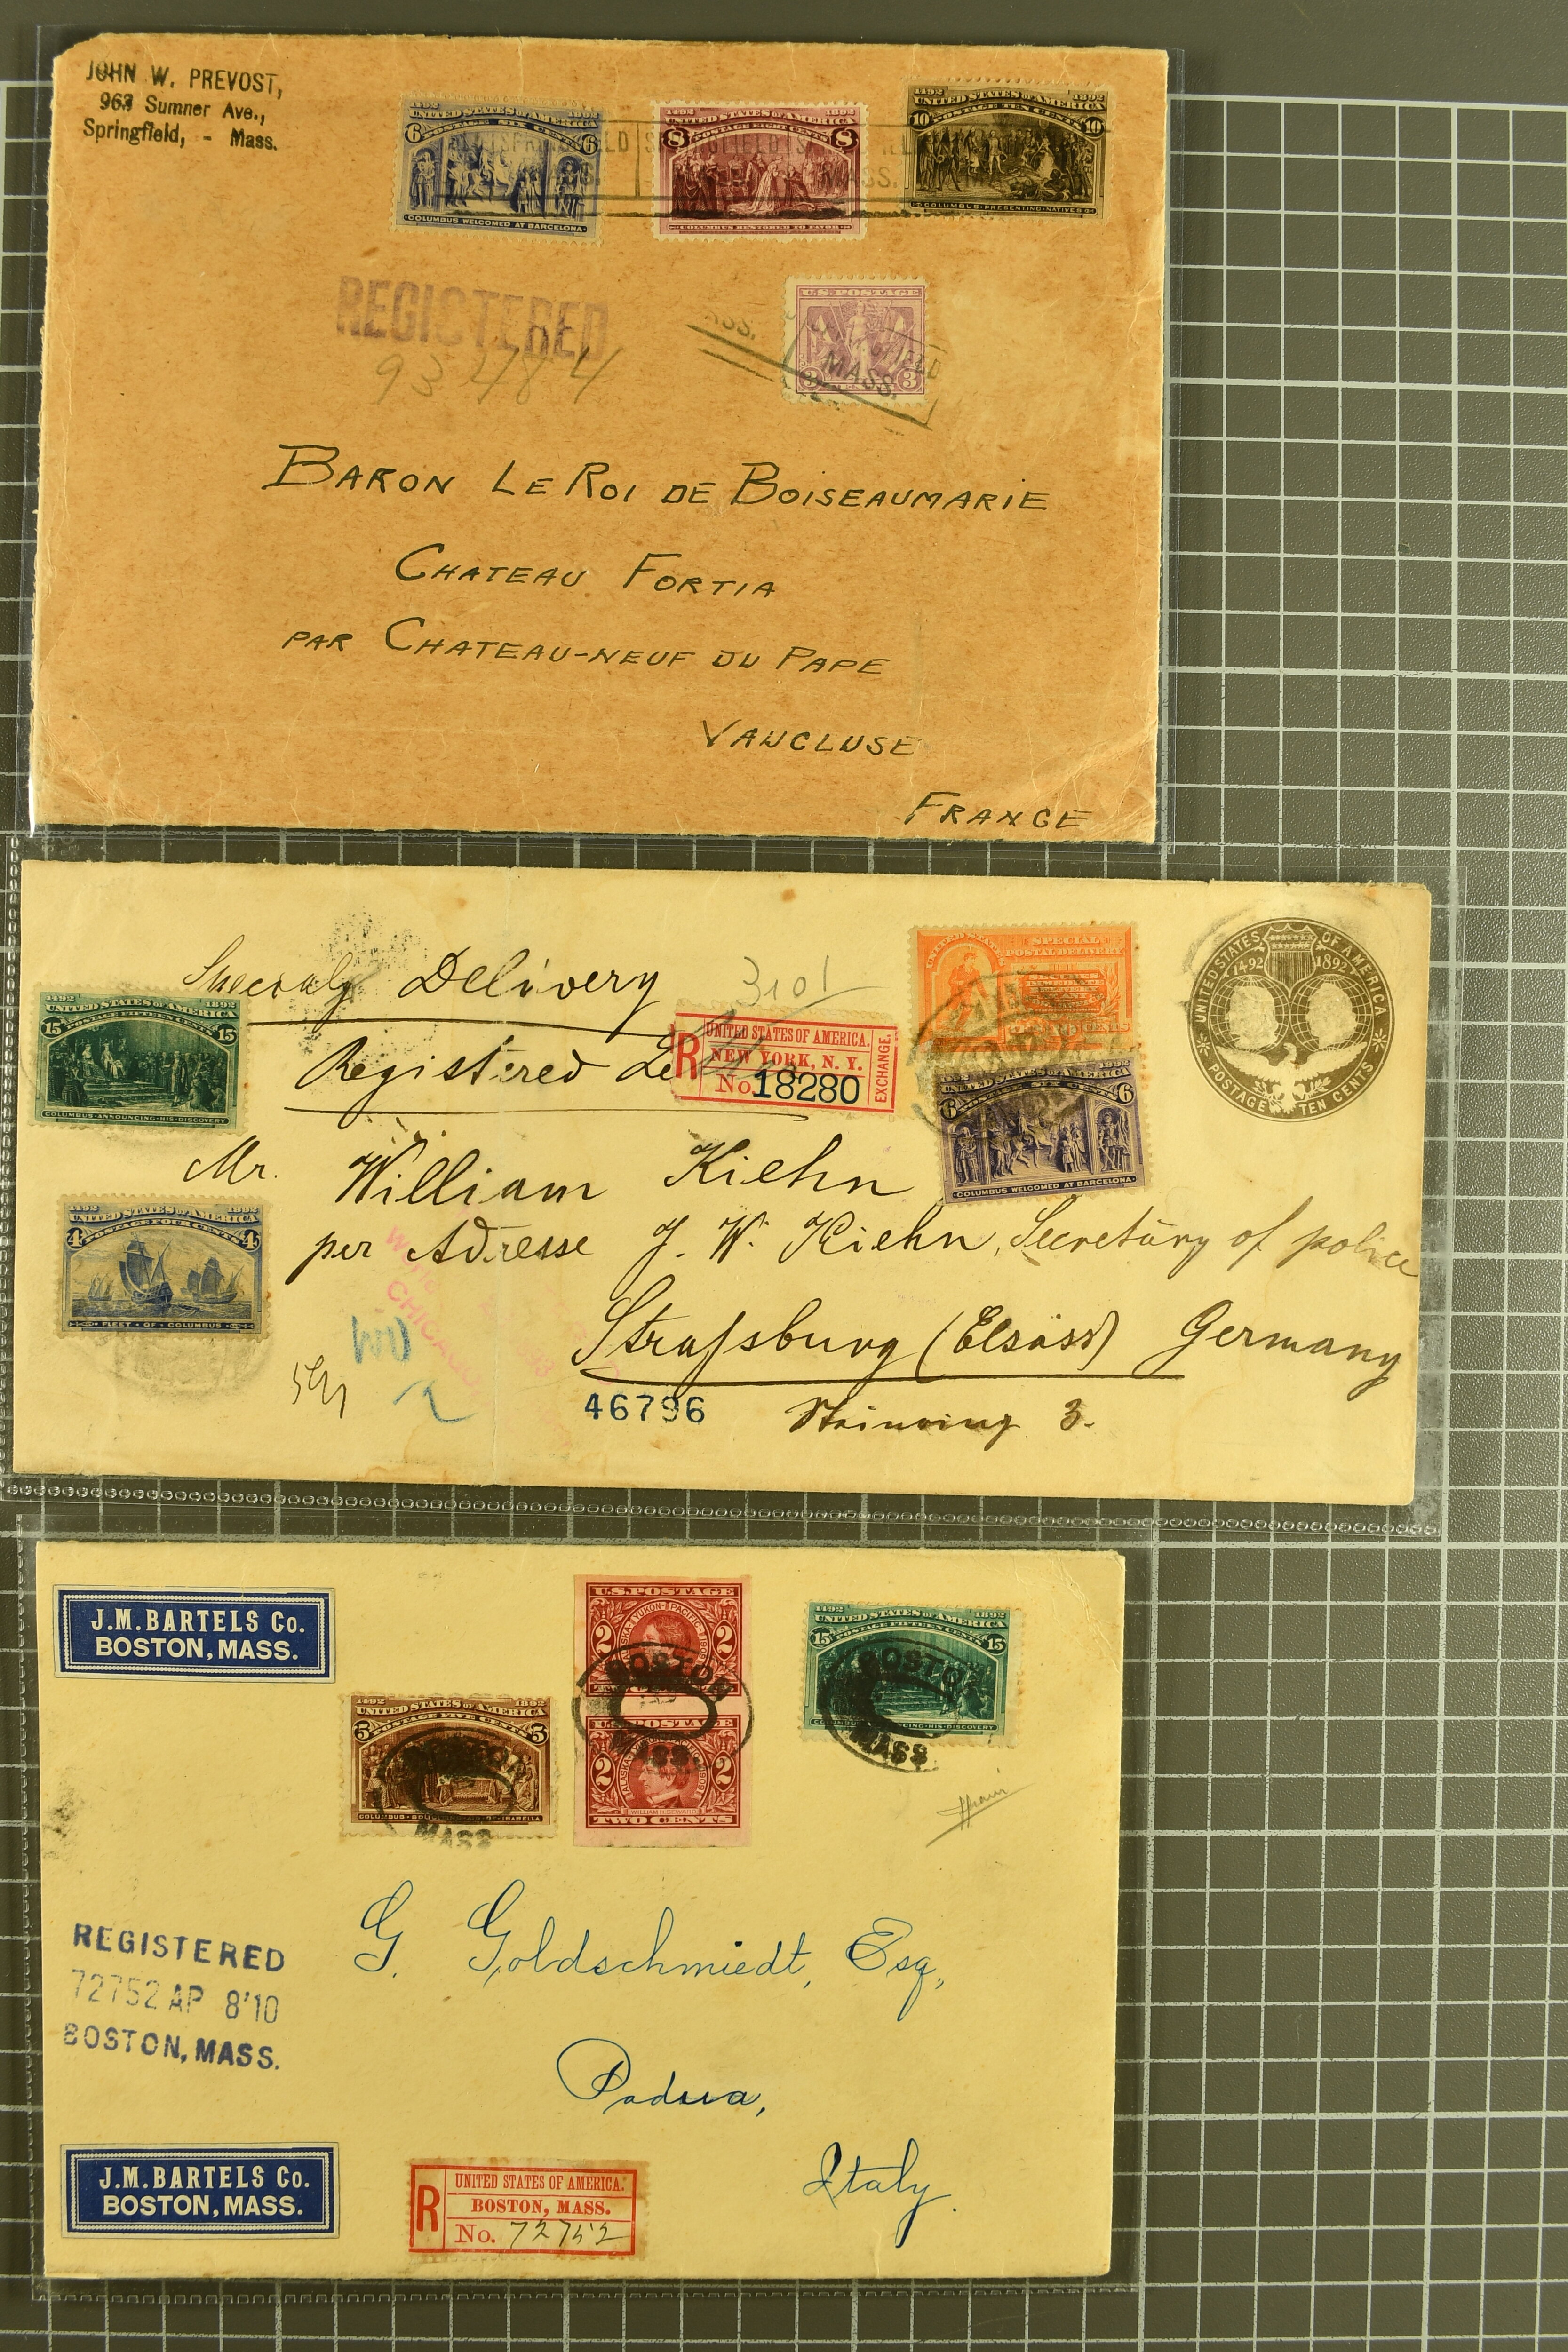 JOHN W. PREVOST,
963 Sumner Ave.,
Springfield, - Mass.
1492 1892
UNITED STATES OF AMERICA
POSTAGE SIX CENTS
6 6
COLUMBUS WELCOMED AT BARCELONA
1492 1892
UNITED STATES OF AMERICA
POSTAGE EIGHT CENTS
8 8
COLUMBUS RESTORED TO FAVOR
1492 1892
UNITED STATES OF AMERICA
POSTAGE TEN CENTS
10 10
COLUMBUS PRESENTING NATIVES
SPRINGFIELD
MASS.
REGISTERED
93484
U.S. POSTAGE
3 3
MASS.
BARON LE ROI DE BOISEAUMARIE
CHATEAU FORTIA
PAR CHATEAU-NEUF DU PAPE
VAUCLUSE
FRANCE
Specialy Delivery
3101
Registered Le
R
UNITED STATES OF AMERICA.
NEW YORK, N. Y.
No. 18280
EXCHANGE.
1492 1892
UNITED STATES OF AMERICA
15 15
COLUMBUS ANNOUNCING HIS DISCOVERY
UNITED STATES
SPECIAL
POSTAL DELIVERY
CENTS
UNITED STATES OF AMERICA
1492 1892
POSTAGE TEN CENTS
1892
UNITED STATES OF AMERICA
POSTAGE SIX CENTS
6 6
COLUMBUS WELCOMED AT BARCELONA
Mr. William Kiehn
per Adresse J. W. Kiehn, Secretäry of police
Straßburg (Elsass) Germany
1492 1892
UNITED STATES OF AMERICA
POSTAGE FOUR CENTS
4 4
FLEET OF COLUMBUS
CHICAGO
46796
3.
J.M. BARTELS Co.
BOSTON, MASS.
1492 1892
UNITED STATES OF AMERICA
POSTAGE FIVE CENTS
5 5
U.S. POSTAGE
ALASKA-YUKON-PACIFIC-1909
2 2
BOSTON
MASS.
U.S. POSTAGE
2 2
WILLIAM H. SEWARD
TWO CENTS
1492 1892
UNITED STATES OF AMERICA
POSTAGE FIFTEEN CENTS
15 15
BOSTON
MASS
MASS
G. Goldschmiedt, Esq.,
Padua,
Italy.
REGISTERED
72752 AP 8'10
BOSTON, MASS.
J.M. BARTELS Co.
BOSTON, MASS.
R
UNITED STATES OF AMERICA.
BOSTON, MASS.
No. 72752